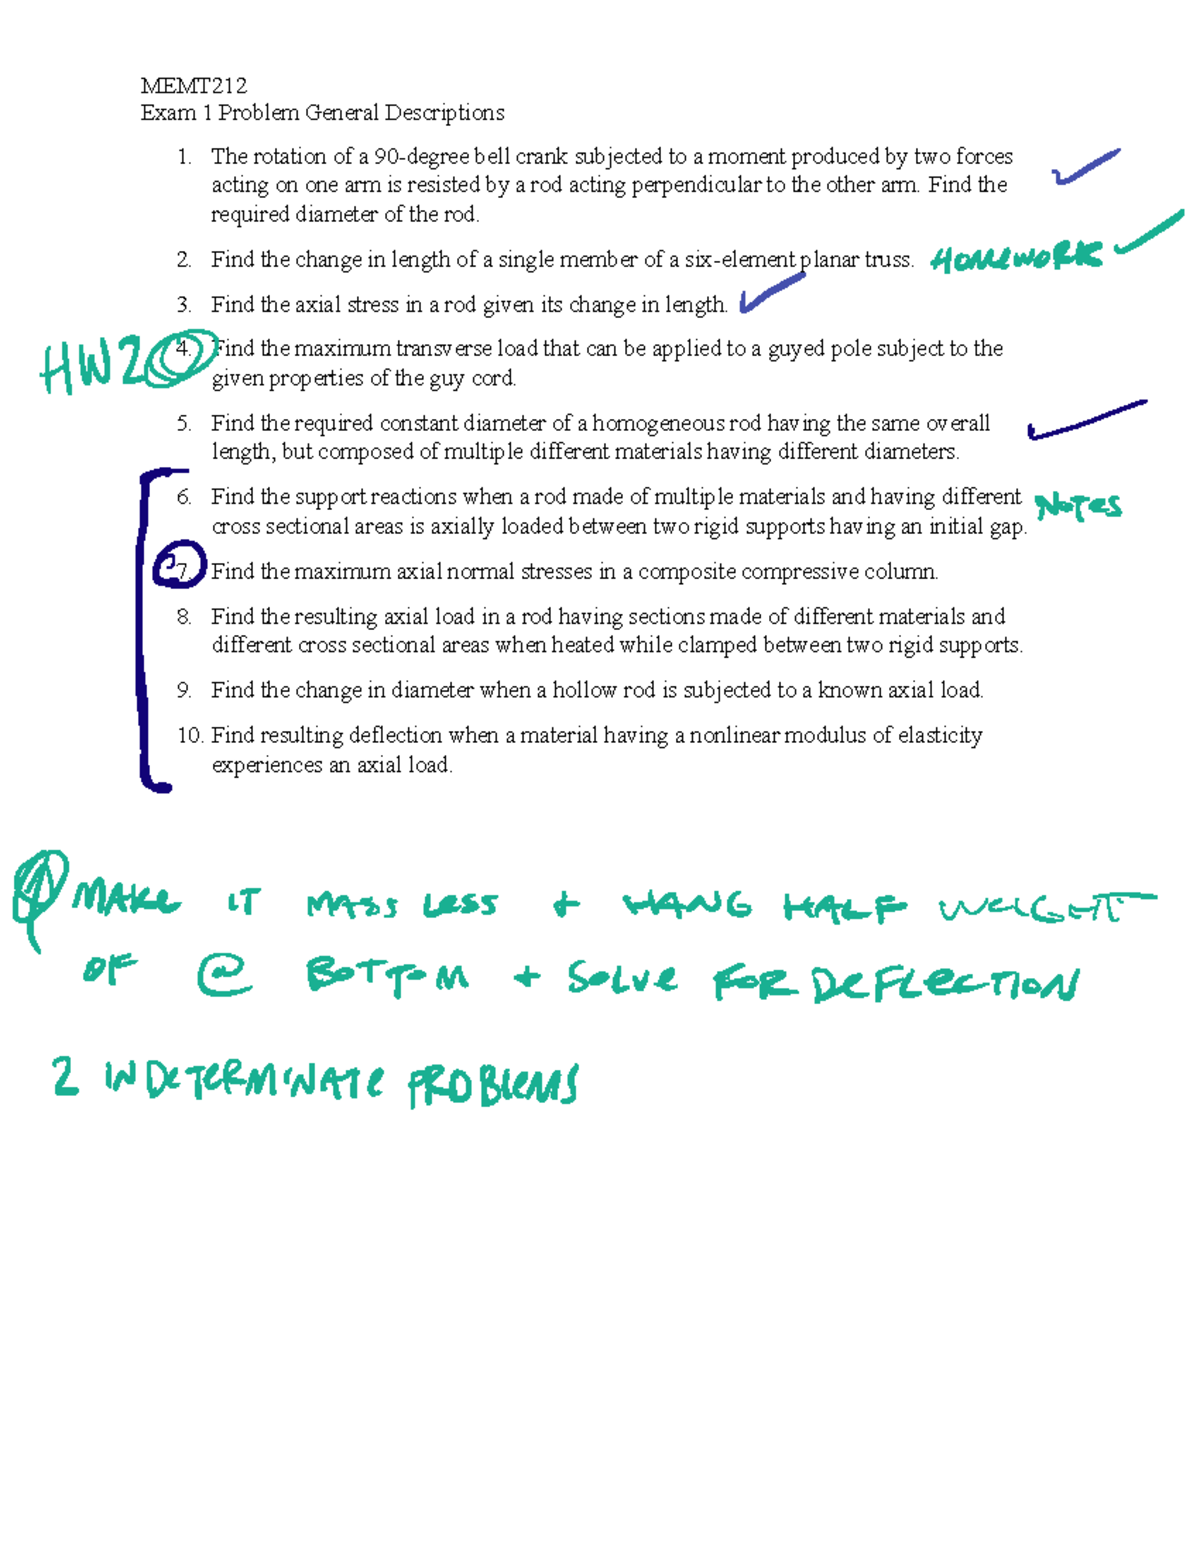 MEMT212
Exam 1 Problem General Descriptions
1. The rotation of a 90-degree bell crank subjected to a moment produced by two forces
acting on one arm is resisted by a rod acting perpendicular to the other arm. Find the
required diameter of the rod.
2. Find the change in length of a single member of a six-element planar truss. HOMEWORK
3. Find the axial stress in a rod given its change in length.
HW2 4. Find the maximum transverse load that can be applied to a guyed pole subject to the
given properties of the guy cord.
5. Find the required constant diameter of a homogeneous rod having the same overall
length, but composed of multiple different materials having different diameters.
6. Find the support reactions when a rod made of multiple materials and having different NOTES
cross sectional areas is axially loaded between two rigid supports having an initial gap.
7. Find the maximum axial normal stresses in a composite compressive column.
8. Find the resulting axial load in a rod having sections made of different materials and
different cross sectional areas when heated while clamped between two rigid supports.
9. Find the change in diameter when a hollow rod is subjected to a known axial load.
10. Find resulting deflection when a material having a nonlinear modulus of elasticity
experiences an axial load.
MAKE IT MASS LESS + HANG HALF WEIGHT
OF @ BOTTOM + SOLVE FOR DEFLECTION
2 INDETERMINATE PROBLEMS